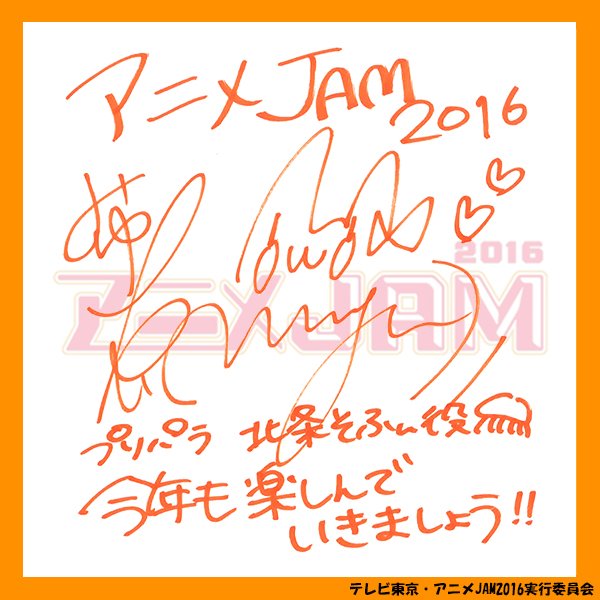 アニメJAM
2016
2016
アニメJAM
プリパラ 北条そふぃ役
今年も楽しんで
いきましょう!!
テレビ東京・アニメJAM2016実行委員会